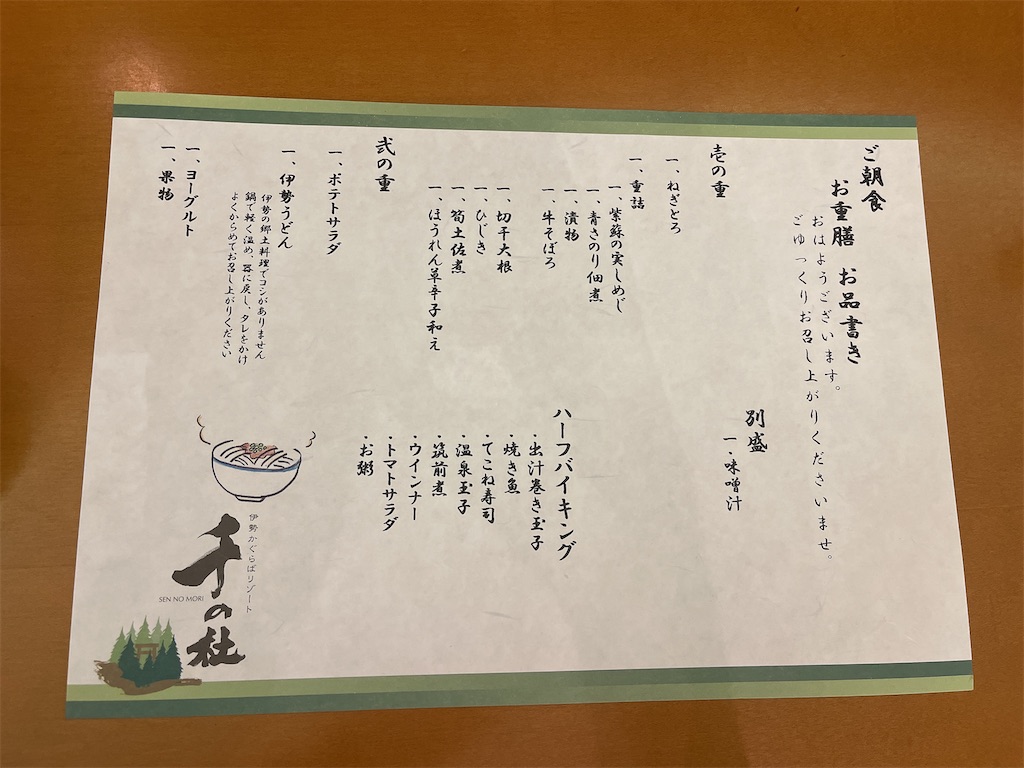 ご朝食
お重膳 お品書き
おはようございます。
ごゆっくりお召し上がりくださいませ。
壱の重
一、ねぎとろ
一、重詰
一、紫蘇の実しめじ
一、青さのり佃煮
一、漬物
一、牛そぼろ
一、切干大根
一、ひじき
一、筍土佐煮
一、ほうれん草辛子和え
弐の重
一、ポテトサラダ
一、伊勢うどん
伊勢の郷土料理でコシがありません
鍋で軽く温め、器に戻し、タレをかけ
よくからめてお召し上がりください
一、ヨーグルト
一、果物
別盛
一・味噌汁
ハーフバイキング
・出汁巻き玉子
・焼き魚
・てこね寿司
・温泉玉子
・筑前煮
・ウインナー
・トマトサラダ
・お粥
伊勢かぐらばリゾート
千の杜
SEN NO MORI